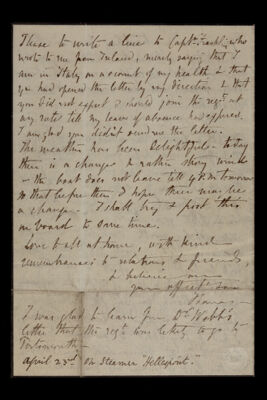 Please to write a line to Capt: who
wrote to me from Ireland, merely saying that I
am in Italy on account of my health & that
you had opened the letter by my direction & that
you did not expect I should join the regt at
any rate till my leave of absence had expired.
I am glad you didn't send me the letter.
The weather has been delightful - today
there is a change & rather strong wind
- the boat does not leave till 4 P.M. tomorrow
so that before then I hope there may be
a change. I shall try & post this
on board to save time.
Love to all at home, with kind
remembrances to relations & friends
& believe me
your affect: son
Thomas
I was glad to learn from Dr Webb's
letter that the regt was likely to go to
Portsmouth -
April 23d on Steamer "Hellespont."